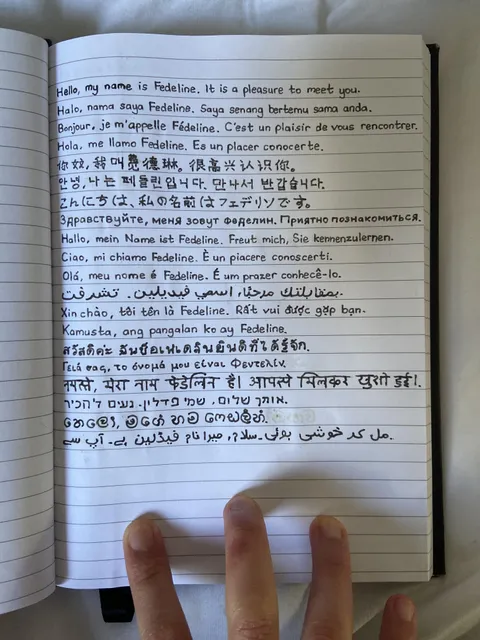 Hello, my name is Fedeline. It is a pleasure to meet you.
Halo, nama saya Fedeline. Saya senang bertemu sama anda.
Bonjour, je m'appelle Fédeline. C'est un plaisir de vous rencontrer.
Hola, me llamo Fedeline. Es un placer conocerte.
你好, 我叫費德琳。很高兴认识你。
안녕, 나는 페들린입니다. 만나서 반갑습니다.
こんにちは、私の名前はフェデリソです。
Здравствуйте, меня зовут феделин. Приятно познакомиться.
Hallo, mein Name ist Fedeline. Freut mich, Sie kennenzulernen.
Ciao, mi chiamo Fedeline. È un piacere conoscerti.
Olá, meu nome é Fedeline. É um prazer conhecê-lo.
بمقابلتك مرحبًا, اسمي فيديلين. تشرفت.
Xin chào, tôi tên là Fedeline. Rất vui được gặp bạn.
Kamusta, ang pangalan ko ay Fedeline.
สวัสดีค่ะ ฉันชื่อเฟเดลินยินดีที่ได้รู้จัก.
Γειά σας, το όνομά μου είναι Φεντελίν.
नमस्ते, मेरा नाम फेडेलिन है। आपसे मिलकर खुशी हुई।
אותך שלום, שמי פדלין. נעים להכיר.
مل کر خوشی ہوئی۔ سلام, میرا نام فیڈلین ہے۔ آپ سے.